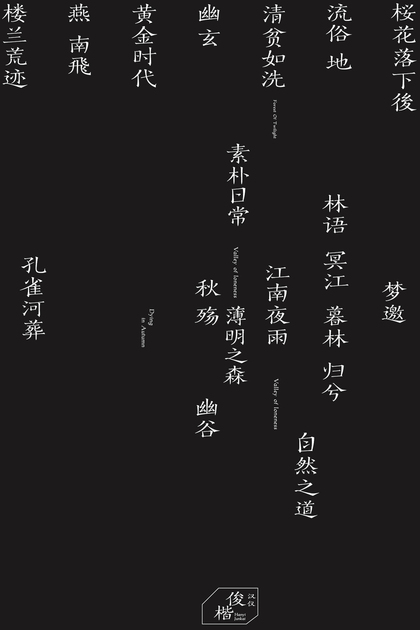 桜花落下後
流俗 地
清贫如洗
Forest Of Twilight
幽玄
黄金时代
燕 南飛
楼兰荒迹
素朴日常
Valley of loneness
林语 冥江 暮林 归兮
江南夜雨
Valley of loneness
梦邀
孔雀河葬
秋殇
薄明之森
Dying
in Autumn
幽谷
自然之道
汉仪
俊楷
Hanyi
Junkai